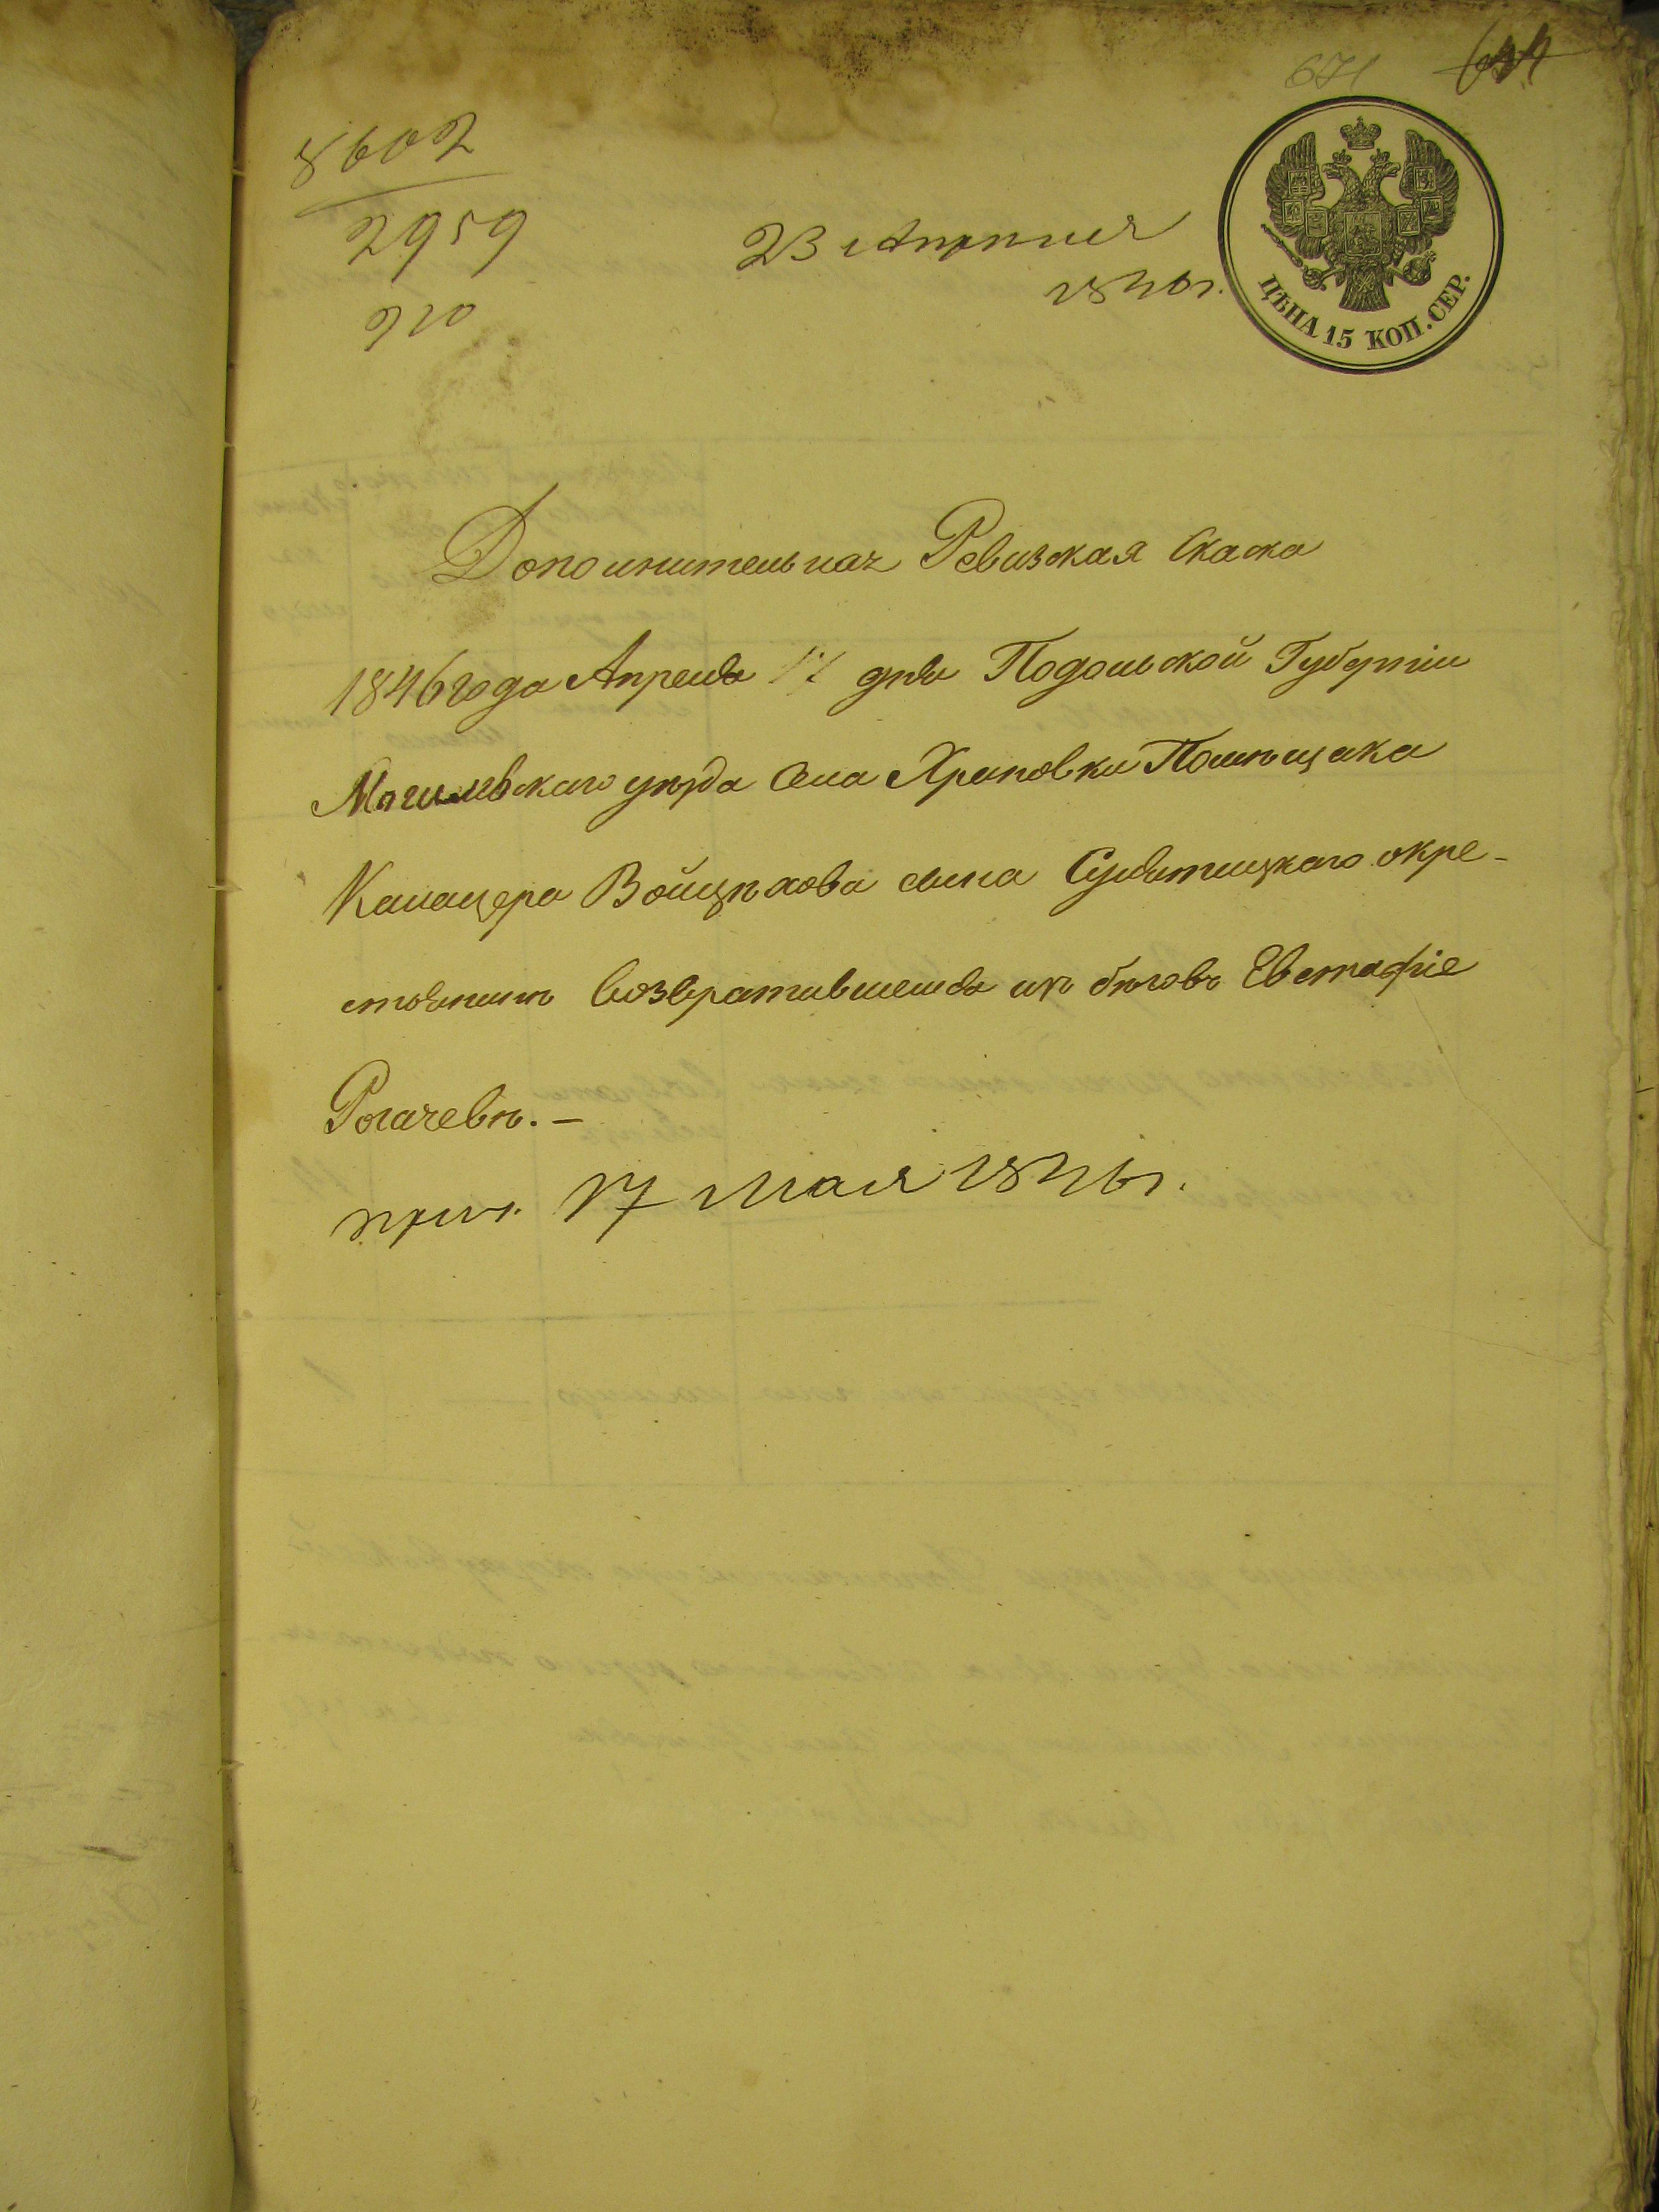 671
8602
2959
910
23 Апреля
1846 г.
ЦѢНА 15 КОП. СЕР.
Дополнительная Ревизская Скаска
1846 года Апреля 17 дня Подольской Губерніи
Могилевскаго уѣзда Села Хреновки Помѣщика
Каласцера Войцѣхова сына крестьянинѣ
Возвратившемся изъ бѣговъ Евстафіе
Рогачевѣ. –
17 Мая 1846 г.